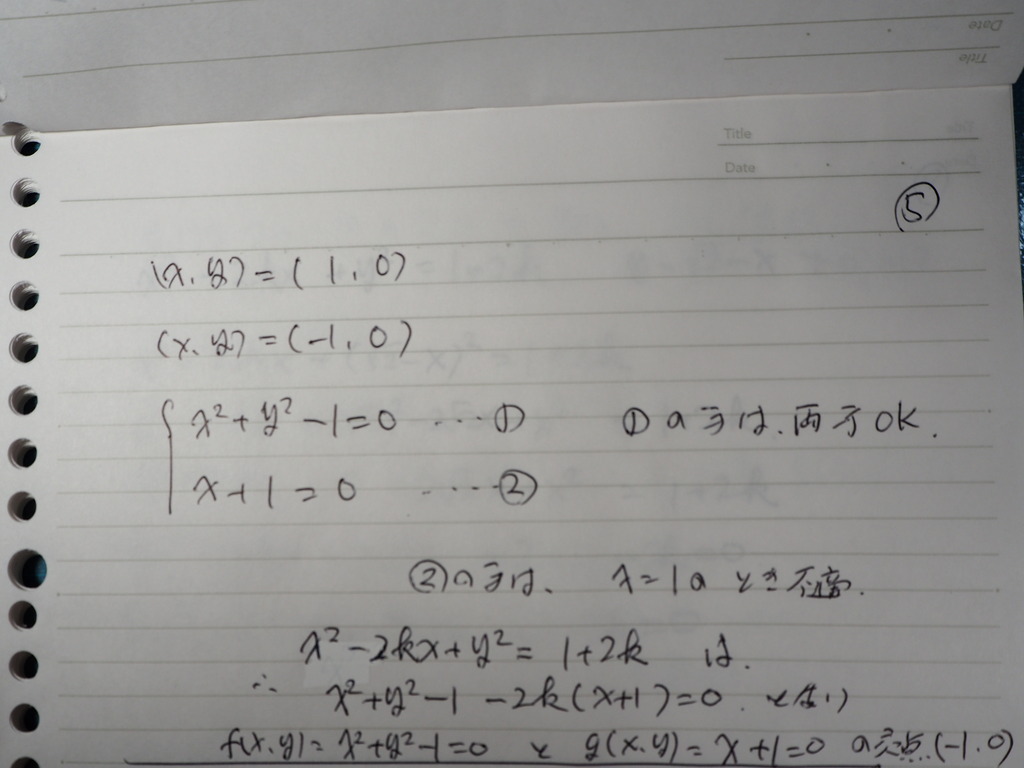 Date
Title
Title
Date
⑤
(x, y) = (1, 0)
(x, y) = (-1, 0)
x² + y² - 1 = 0 ...① ①の式は、両方OK.
x + 1 = 0 ...②
②の式は、 x = 1のとき不適.
x² - 2kx + y² = 1 + 2k は、
∴ x² + y² - 1 - 2k(x+1) = 0. となり
f(x, y) = x² + y² - 1 = 0 と g(x, y) = x + 1 = 0 の交点(-1, 0)